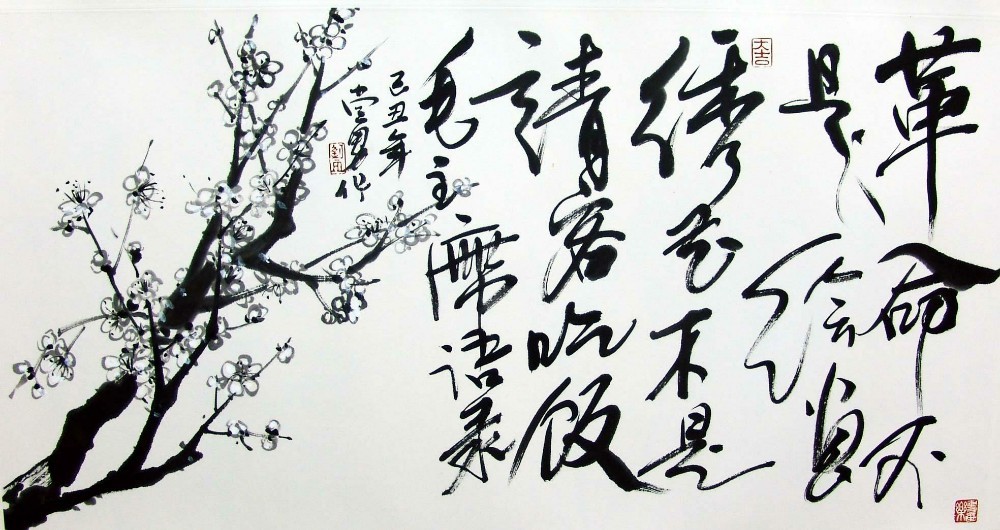 革命不
是绘画
大吉
绣花不是
請客吃饭
毛主席语录
己丑年
作